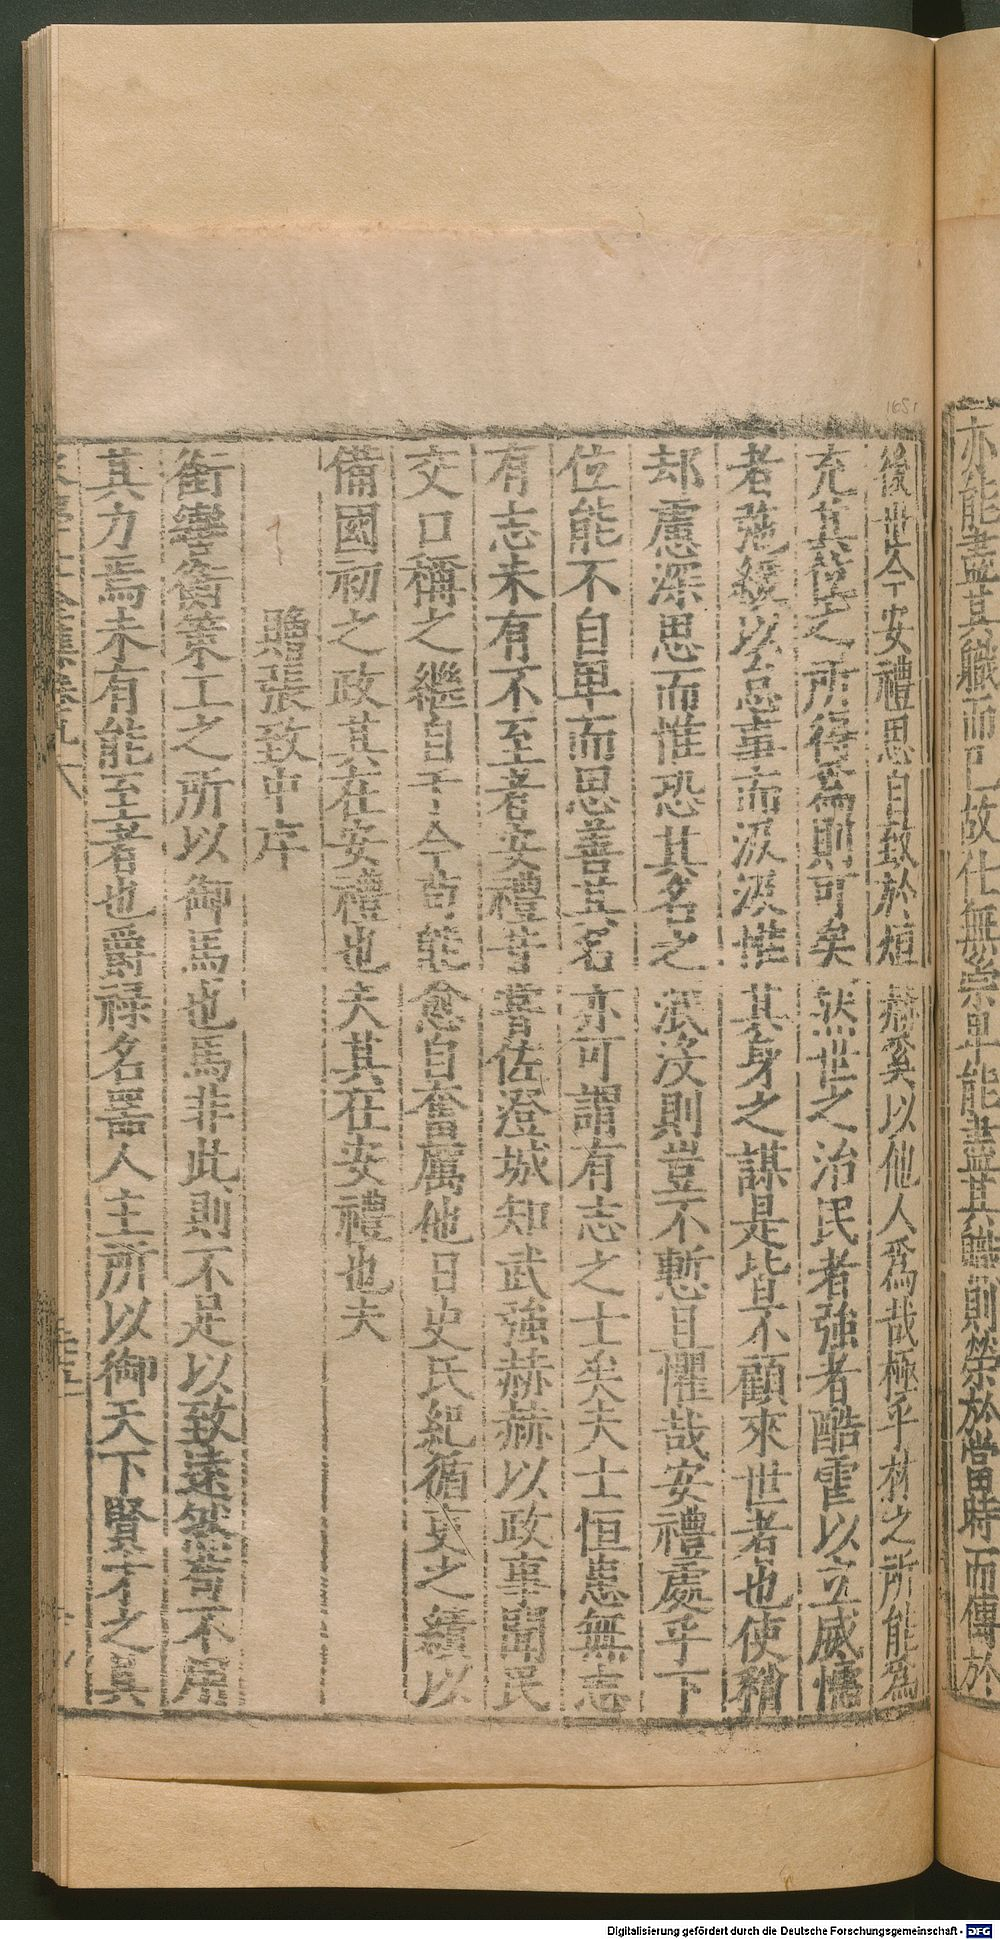 亦能盡其職而已故仕無崇卑能盡其職則榮於當時而傳於
後世今安禮思自致於烜赫奚以他人爲哉極乎材之所能爲
充其位之所得爲則可矣然世之治民者強者酷霍以立威懦
者弛緩以怠事而汲汲惟其身之謀是皆不顧來世者也使稍
却慮深思而惟恐其名之泯沒則豈不慙且懼哉安禮處乎下
位能不自卑而思善其名亦可謂有志之士矣夫士恒患無志
有志未有不至者安禮昔嘗佐澄城知武強赫赫以政事聞民
交口稱之繼自于今苟能愈自奮厲他日史氏紀循吏之績以
備國初之政其在安禮也夫其在安禮也夫
贈張致中序
銜轡衡策工之所以御馬也馬非此則不足以致遠然苟不用
其力焉未有能至者也爵祿名器人主所以御天下賢才之具
1651
Digitalisierung gefördert durch die Deutsche Forschungsgemeinschaft - DFG